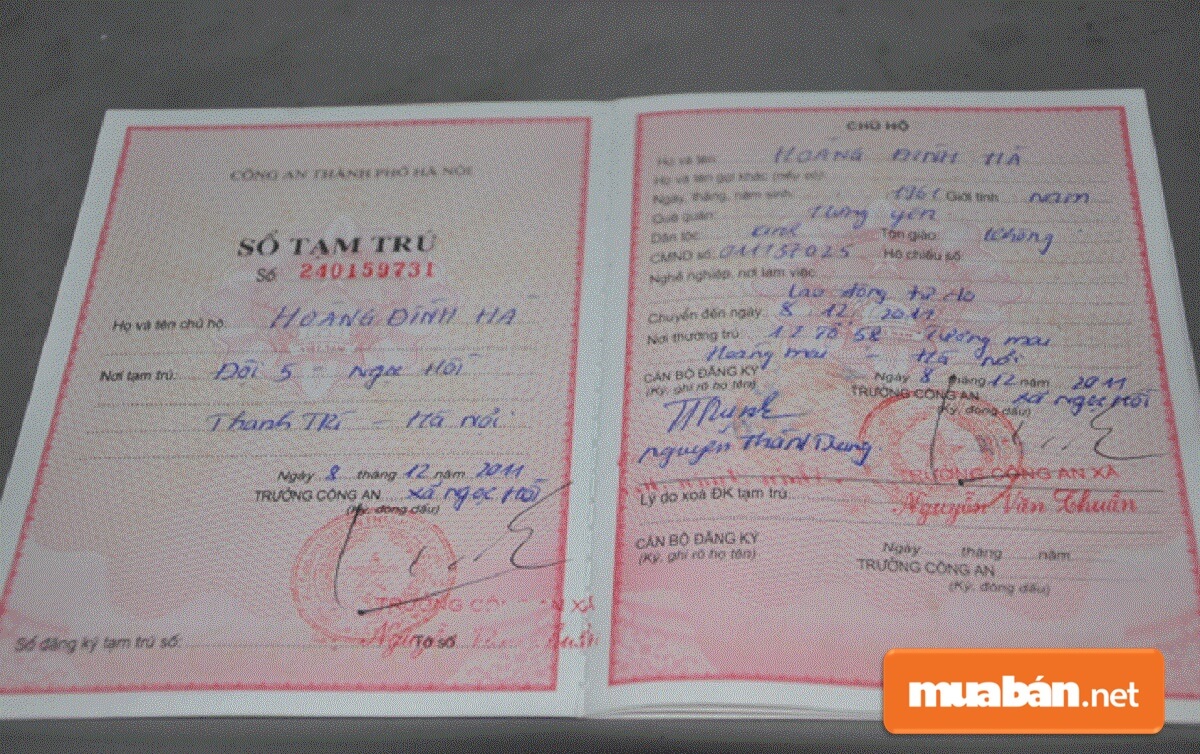 CÔNG AN THÀNH PHỐ HÀ NỘI
SỔ TẠM TRÚ
Số 240159731
Họ và tên chủ hộ: HOÀNG ĐÌNH HÀ
Nơi tạm trú: Đội 5 - Ngọc Hồi
Thanh Trì - Hà Nội
Ngày 8 tháng 12 năm 2011
TRƯỞNG CÔNG AN xã Ngọc Hồi
(Ký, đóng dấu)
TRƯỞNG CÔNG AN XÃ
Sổ đăng ký tạm trú số: Tờ số
CHỦ HỘ
Họ và tên: HOÀNG ĐÌNH HÀ
Họ và tên gọi khác (nếu có):
Ngày, tháng, năm sinh: 1961 Giới tính: nam
Quê quán: Hưng yên
Dân tộc: Kinh Tôn giáo: Không
CMND số: 011157025 Hộ chiếu số:
Nghề nghiệp, nơi làm việc:
Lao động tự do
Chuyển đến ngày: 8 12 2011
Nơi thường trú: Tổ 58 Tương mai
Hoàng mai - Hà nội
CÁN BỘ ĐĂNG KÝ
(Ký, ghi rõ họ tên)
Ngày 8 tháng 12 năm 2011
TRƯỞNG CÔNG AN xã Ngọc Hồi
(Ký, đóng dấu)
nguyễn Thành Trung
TRƯỞNG CÔNG AN XÃ
Nguyễn Văn Thuấn
Lý do xoá ĐK tạm trú:
CÁN BỘ ĐĂNG KÝ
(Ký, ghi rõ họ tên)
Ngày tháng năm
TRƯỞNG CÔNG AN
(Ký, đóng dấu)
muabán.net